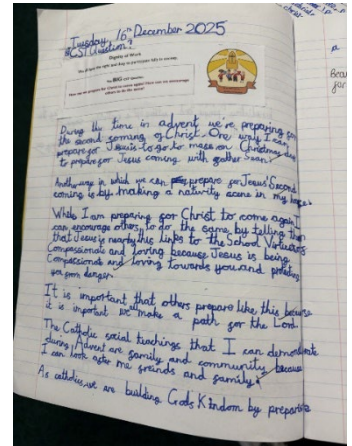 Tuesday 16th December 2025
CSI Question?
Dignity of Work
The BIG CST question:
During the time in advent we're preparing for
the second coming of Christ. One way I can
prepare for Jesus is to go to mass on Christmas
to prepare for Jesus coming with father Sean.
Another way in which we can prepare for Jesus' Second
coming is by making a nativity scene in my
While I am preparing for Christ to come again I
can encourage others to do the same by telling them
that Jesus is nearby this links to the School Virtues
Compassionate and loving because Jesus is being
Compassionate and loving towards you and protecting
you from danger.
It is important that others prepare like this because
it is important we make a path for the Lord.
The Catholic social teachings that I can demonstrate
during Advent are family and community because
I can look after me freinds and family.
As catholics, we are building God's Kindom by